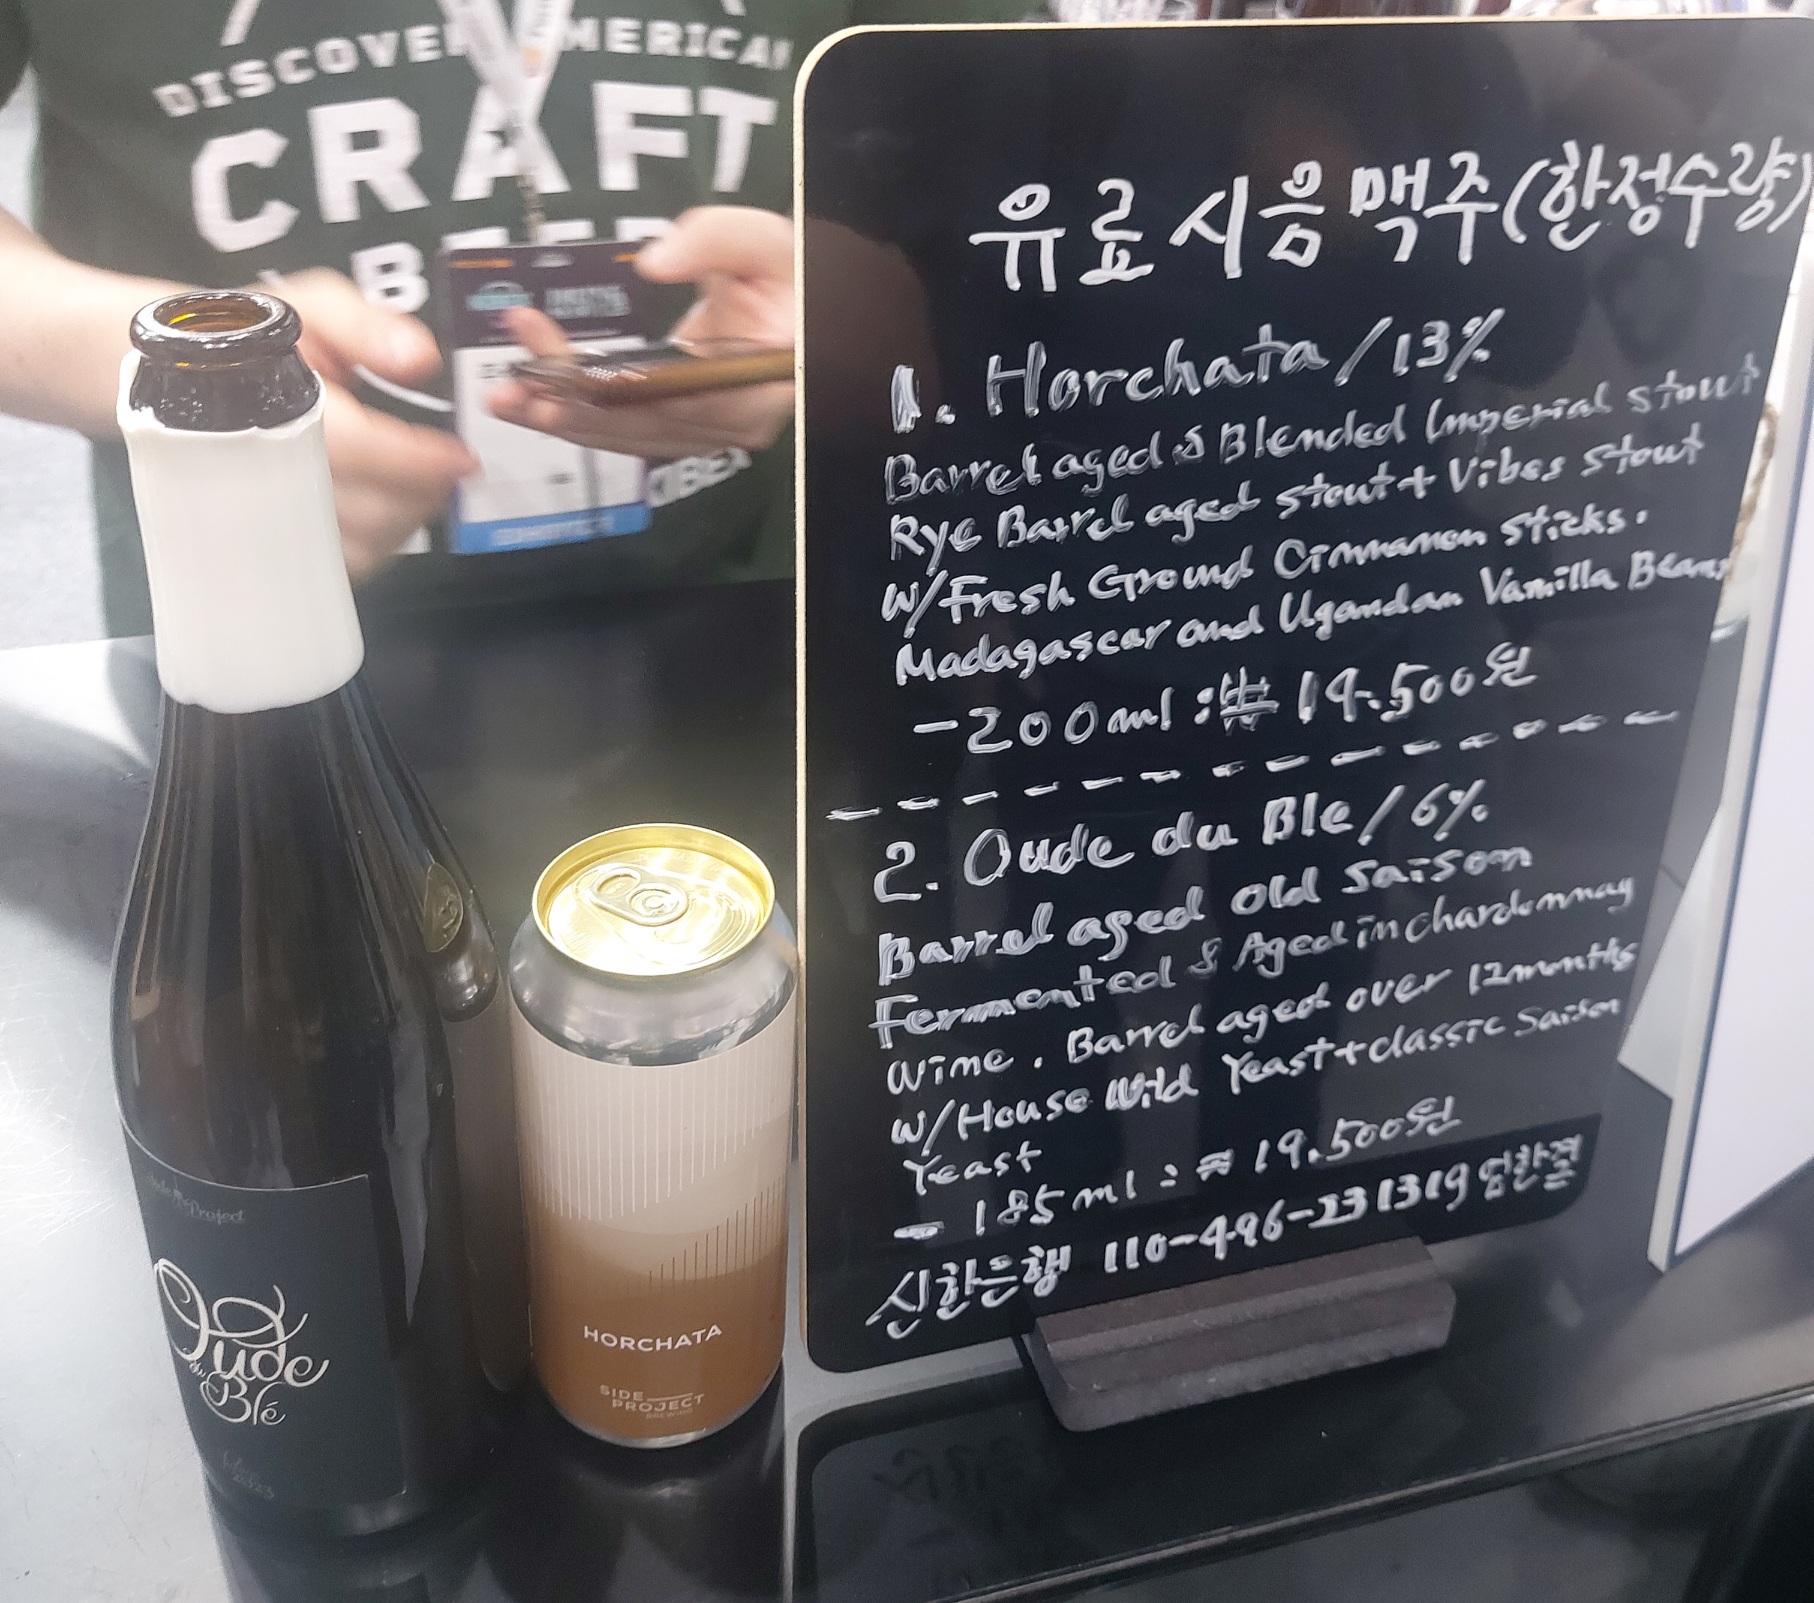 DISCOVER AMERICAN
CRAFT
BEER
유료시음맥주(한정수량)
1. Horchata / 13%
Barrel aged & Blended Imperial stout
Rye Barrel aged stout + Vibes stout
W/Fresh Ground Cinnamon sticks.
Madagascar and Ugandan Vanilla Beans
-200ml : ₩ 19.500원
2. Oude du Ble / 6%
Barrel aged old saison
Fermented & Aged in chardonnay
Wine. Barrel aged over 12months
W/House Wild Yeast+classic saison
Yeast
- 185ml : ₩ 19.500원
신한은행 110-496-231319 담한결
Project
Oude
du
Blé
HORCHATA
SIDE
PROJECT
BREWING